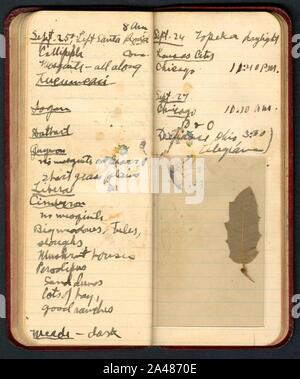 8 am
Sept. 25, Left Santa Rosa
Mesquite - all along
Tucumcari
Logan
Dalhart
Guymon
no mesquite
short grass plains
Liberal
Cimarron
no mesquite
Big meadows, Tules,
sloughs
Muskrat houses
Perodipus
Sand dunes
lots of hay,
good ranches
Meade - dark
Sept. 26 Topeka daylight
Kansas City
Chicago 11:40 P.M.
Sept. 27
Chicago 10:10 am.
B & O
Ohio 330
(telegram)
alamy
Image ID: 2A4870E
www.alamy.com